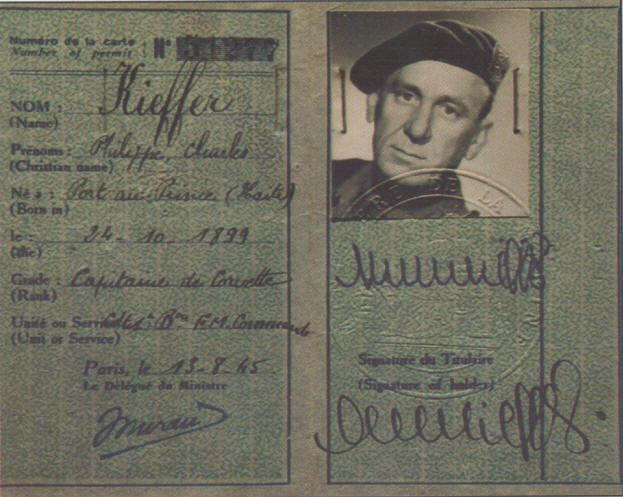 Numéro de la carte
Number of permit : N°
NOM : Kieffer
(Name)
Prénoms : Philippe, Charles
(Christian name)
Né à : Port au Prince (Haïti)
(Born in)
le : 24 - 10 - 1899
(the)
Grade : Capitaine de Corvette
(Rank)
Unité ou Service : Bon F.M. Commando
(Unit or Service)
Paris, le 13-8-45
Le Délégué du Ministre
Signature du Titulaire
(Signature of holder)